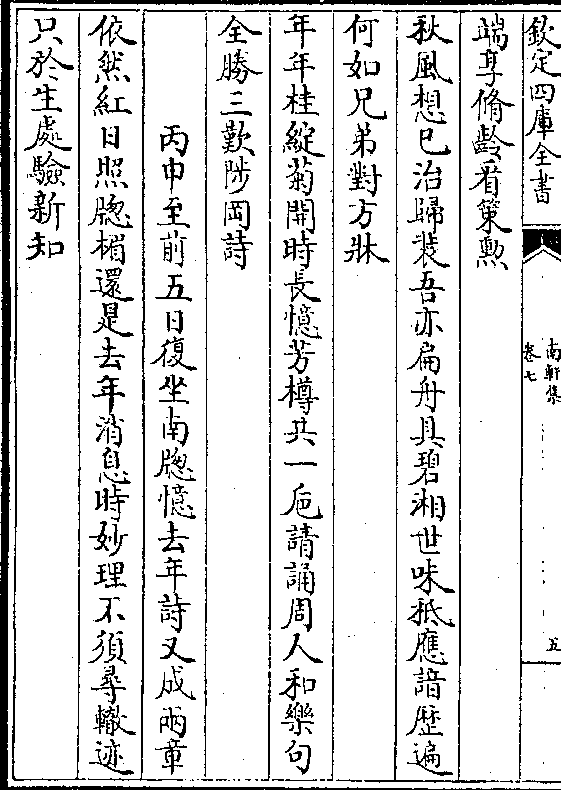 欽定四庫全書
南軒集
卷七
五
端享脩齡看策勲
秋風想已治歸裝吾亦扁舟具碧湘世味秖應諳歴遍
何如兄弟對方牀
年年桂綻菊開時長憶芳樽共一巵請誦周人和樂句
全勝三歎陟岡詩
丙申至前五日復坐南牕憶去年詩又成兩章
依然紅日照牕楣還是去年消息時妙理不須尋轍迹
只於生處驗新知